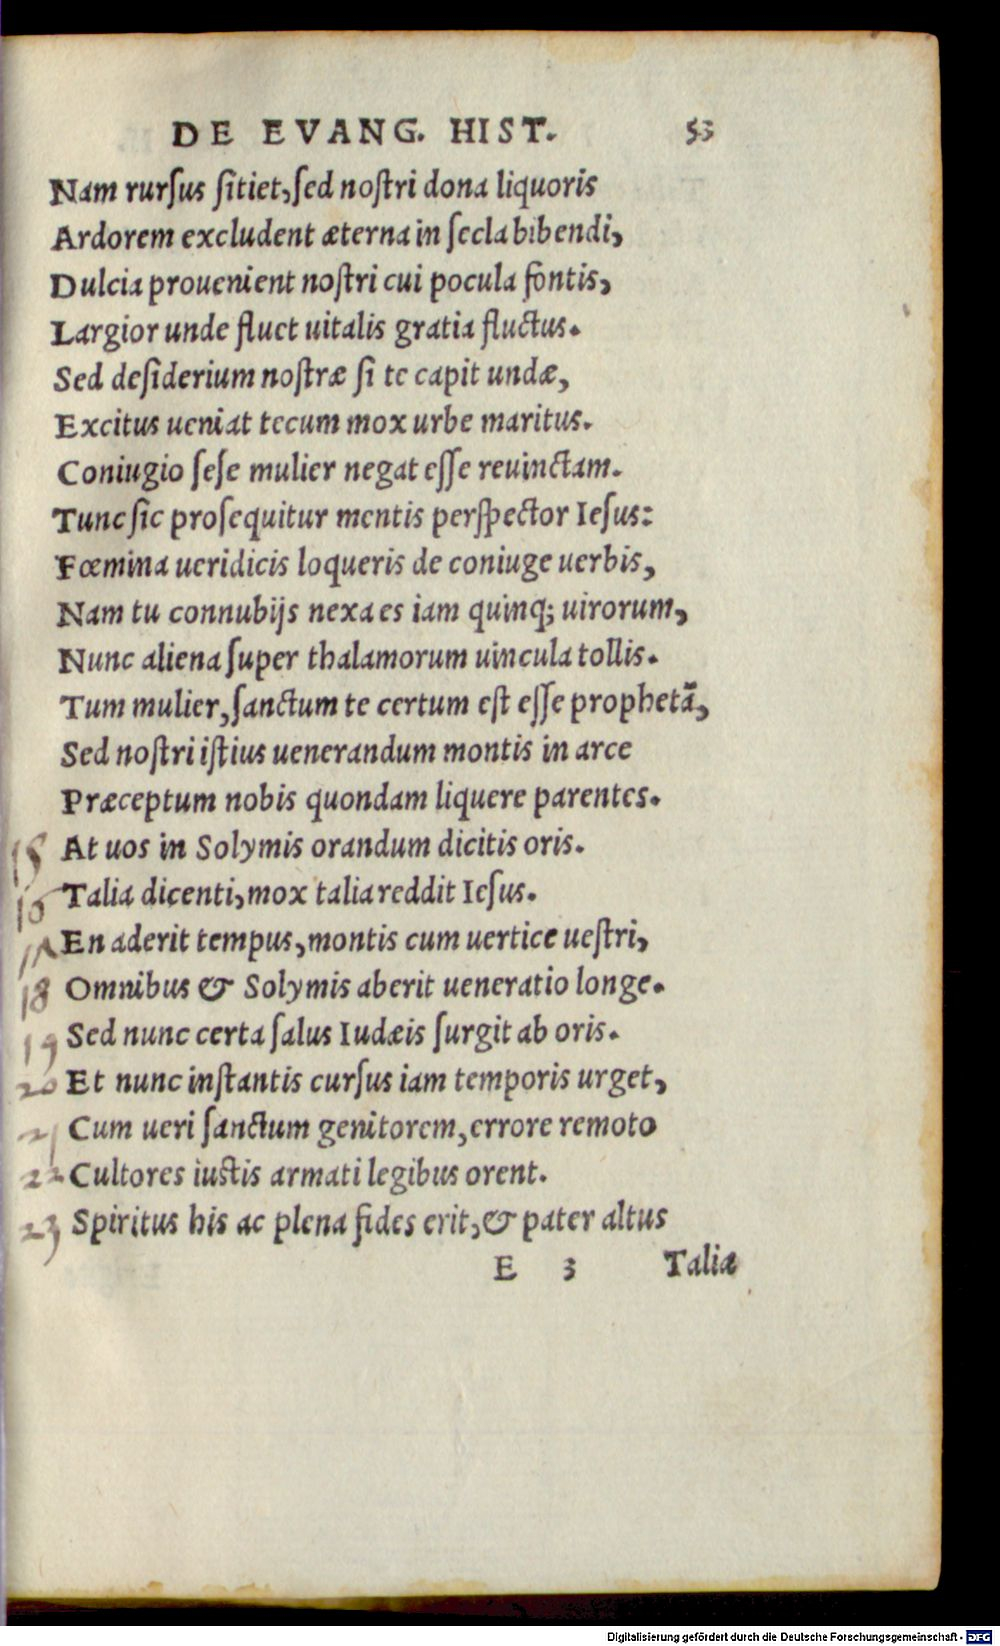 DE EVANG. HIST. 53
Nam rurſus ſitiet, ſed noſtri dona liquoris
Ardorem excludent æterna in ſecla bibendi,
Dulcia prouenient noſtri cui pocula fontis,
Largior unde fluet uitalis gratia fluctus.
Sed deſiderium noſtræ ſi te capit undæ,
Excitus ueniat tecum mox urbe maritus.
Coniugio ſeſe mulier negat eſſe reuinctam.
Tunc ſic proſequitur mentis perſpector Ieſus:
Fœmina ueridicis loqueris de coniuge uerbis,
Nam tu connubijs nexa es iam quinq; uirorum,
Nunc aliena ſuper thalamorum uincula tollis.
Tum mulier, ſanctum te certum eſt eſſe prophetã,
Sed noſtri iſtius uenerandum montis in arce
Præceptum nobis quondam liquere parentes.
15 At uos in Solymis orandum dicitis oris.
16 Talia dicenti, mox talia reddit Ieſus.
17 En aderit tempus, montis cum uertice ueſtri,
18 Omnibus & Solymis aberit ueneratio longe.
19 Sed nunc certa ſalus Iudæis ſurgit ab oris.
20 Et nunc inſtantis curſus iam temporis urget,
21 Cum ueri ſanctum genitorem, errore remoto
22 Cultores iuctis armati legibus orent.
23 Spiritus his ac plena fides erit, & pater altus
E 3 Talia
Digitalisierung gefördert durch die Deutsche Forschungsgemeinschaft - DFG